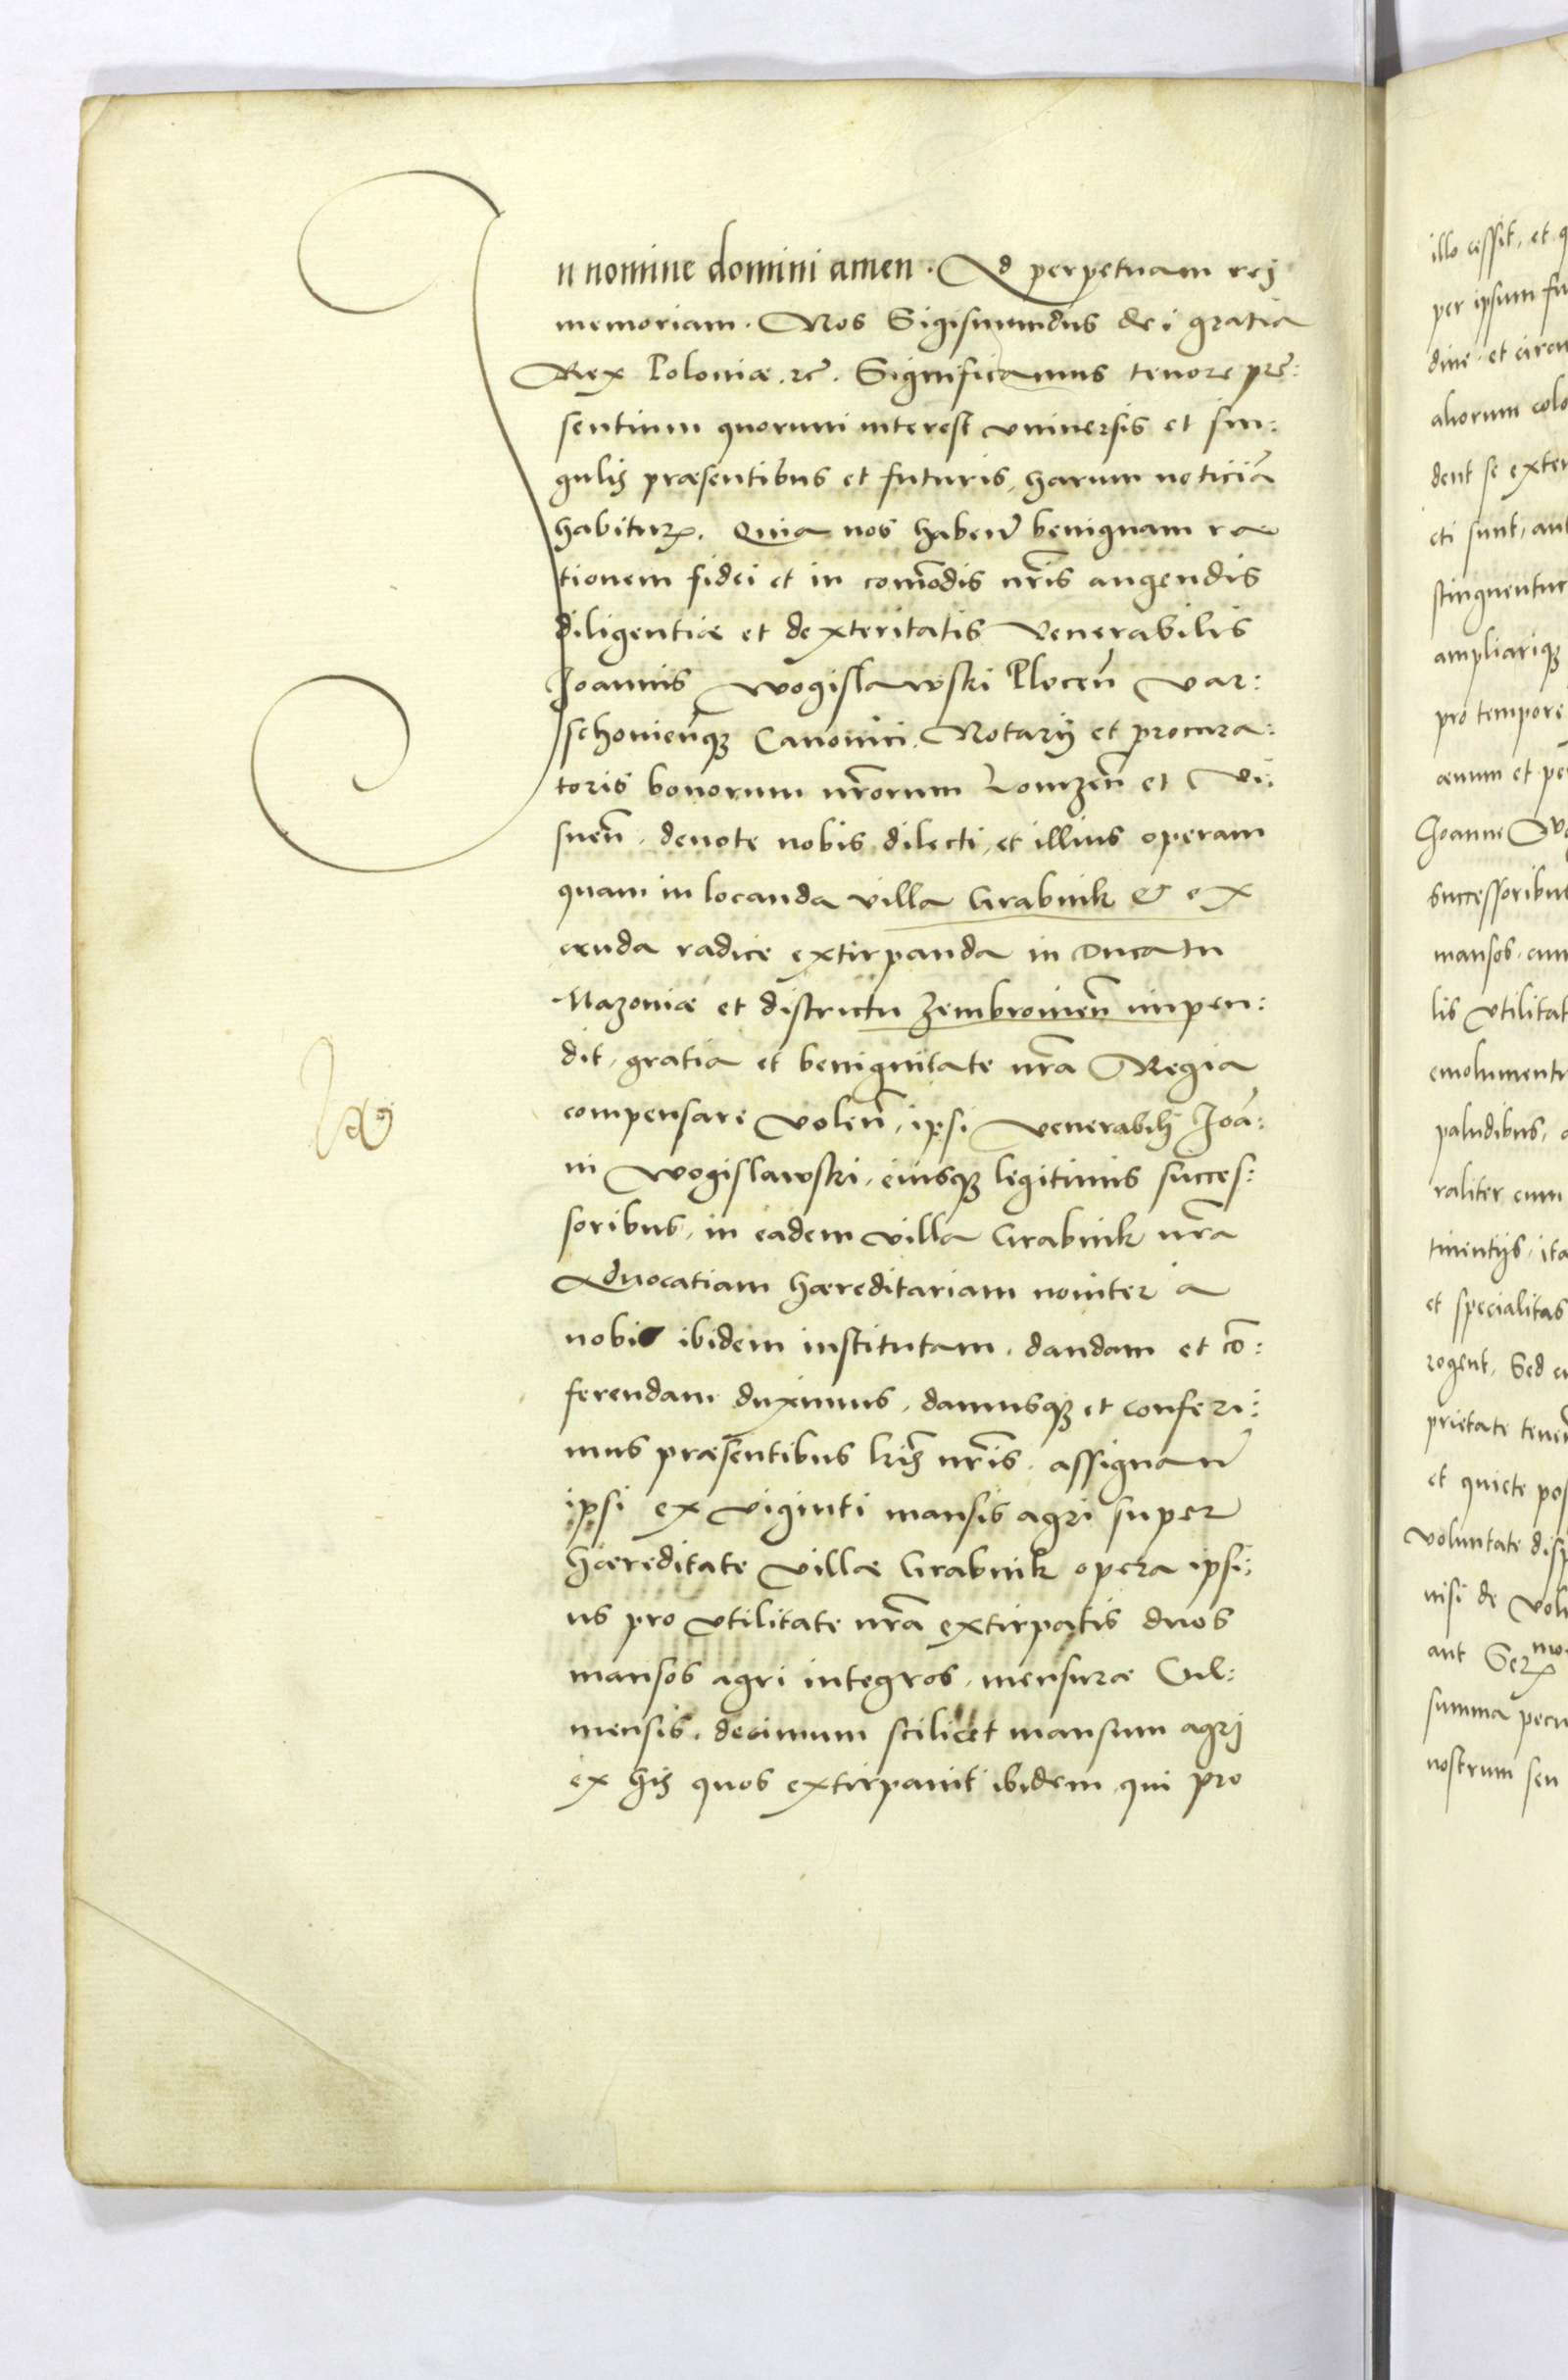 In nomine domini amen. Ad perpetuam rei
memoriam. Nos Sigismundus dei gratia
Rex Poloniæ. rc̃. Significamus tenore præ:
sentium quorum interest vniuersis et sin:
gulis præsentibus et futuris, harum noticiã
habiturꝝ. Quia nos habeñ benignam ra
tionem fidei et in com̃odis nr̃is augendis
diligentiæ et dexteritatis Venerabilis
Joannis Wogislawski Plocen̄ Var:
schouien̄qꝫ Canonici, Notarij et procura:
toris bonorum nr̃orum Lomzen̄ et Vi:
snen̄, deuote nobis dilecti, et illius operam
quam in locanda villa Grabnik & ex
cruda radice extirpanda in Ducatu
Mazouiæ et districtu Zembrouien̄ impen:
dit, gratia et benignitate nr̃a Regia
compensare volen̄, ipsi Venerabili Joã:
ni Wogislawski, eiusqꝫ legitimis succes:
soribus, in eadem villa Grabnik nr̃a
Aduocatiam hæreditariam nouiter a
nobis ibidem institutam, dandam et cõ:
ferendam duximus, damusqꝫ et conferi:
mus præsentibus lr̃is nr̃is, assignan̄
ipsi ex viginti mansis agri super
hæreditate villæ Grabnik opera ipsi:
us pro vtilitate nr̃a extirpatis duos
mansos agri integros, mensuræ Cul:
mensis, decimum scilicet mansum agri
ex his quos extirpauit ibidem, qui pro
illo cessit, et q
per ipsum fu
dine et circu
aliorum colo
dent se exten
cti sunt, aut
stinguentur
ampliariqꝫ
pro tempore
æuum et per
Joanni Wo
successoribus
mansos, cum
lis vtilitat
emolumenti
paludibus,
raliter cum
tinentijs, ita
et specialitas
rogent, Sed
prietate tenen̄
et quiete pos
voluntate disp
nisi de volu
aut Serꝫ
summa pecu
nostrum seu